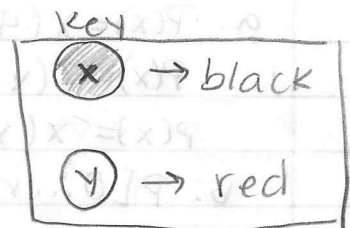 Key
x → black
y → red